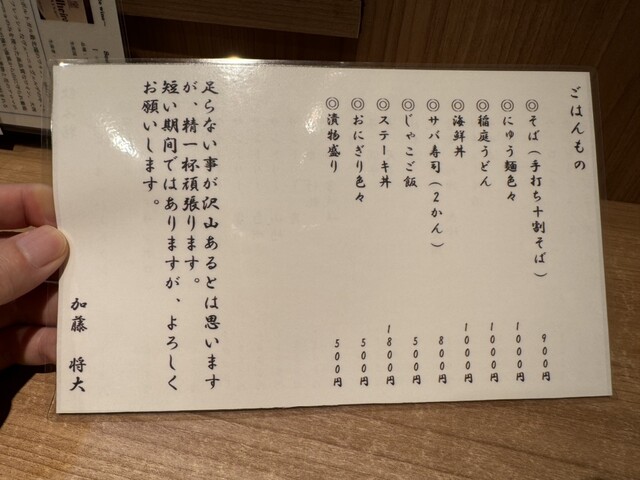 ごはんもの
◎そば（手打ち十割そば） 900円
◎にゅう麺色々 1000円
◎稲庭うどん 1000円
◎海鮮丼 1000円
◎サバ寿司（2かん） 800円
◎じゃこご飯 500円
◎ステーキ丼 1800円
◎おにぎり色々 500円
◎漬物盛り 500円
足らない事が沢山あるとは思います
が、精一杯頑張ります。
短い期間ではありますが、よろしく
お願いします。
加藤 将大